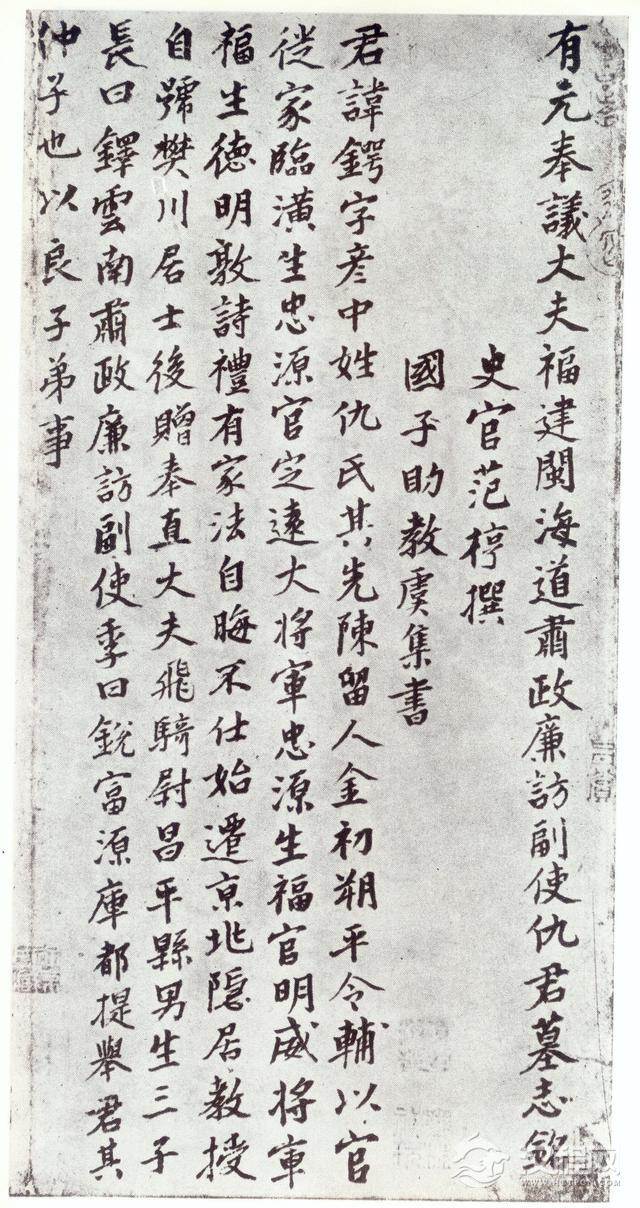 有元奉議大夫福建閩海道肅政廉訪副使仇君墓志銘
史官范梈撰
國子助教虞集書
君諱鍔字彦中姓仇氏其先陳留人金初朔平令輔以官
徙家臨潢生忠源官定遠大将軍忠源生福官明威将軍
福生德明敦詩禮有家法自晦不仕始遷京兆隱居教授
自號樊川居士後贈奉直大夫飛騎尉昌平縣男生三子
長曰鐸雲南肅政廉訪副使季曰銳富源庫都提舉君其
仲子也以良子弟事